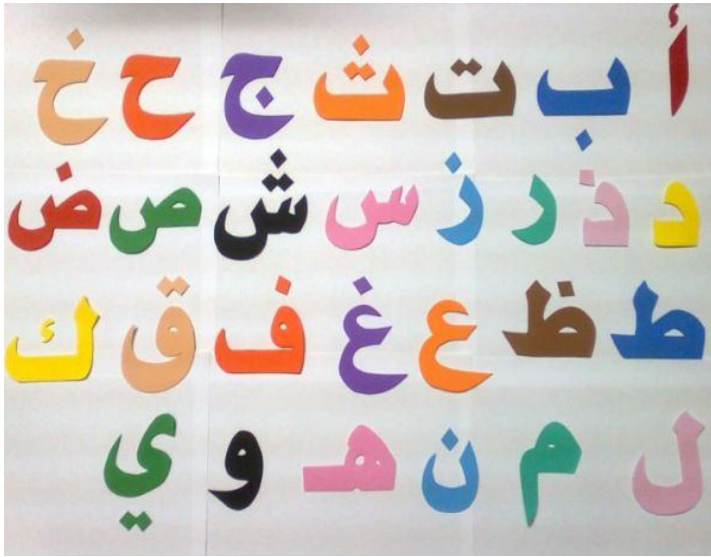 أ ب ت ث ج ح خ
د ذ ر ز س ش ص ض
ط ظ ع غ ف ق ك
ل م ن هـ و ي